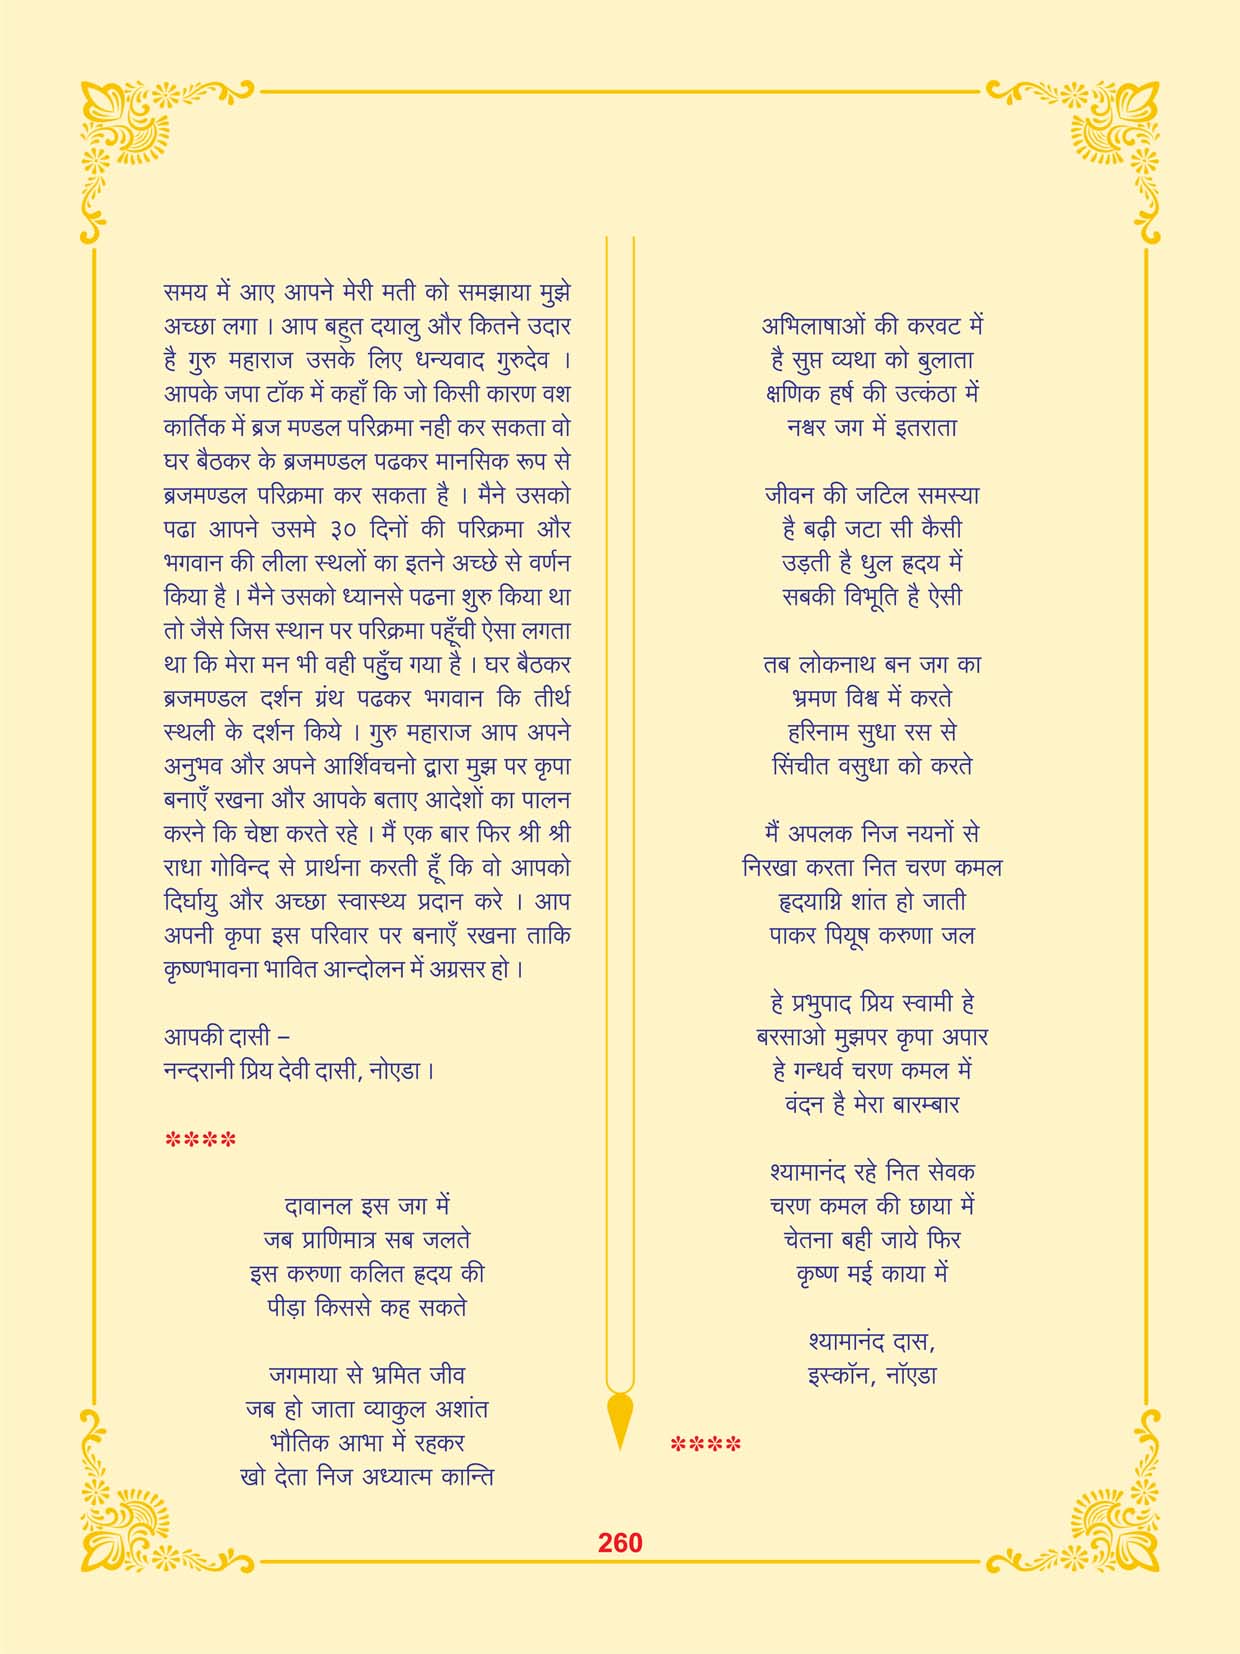 समय में आए आपने मेरी मती को समझाया मुझे
अच्छा लगा । आप बहुत दयालु और कितने उदार
है गुरु महाराज उसके लिए धन्यवाद गुरुदेव ।
आपके जपा टॉक में कहाँ कि जो किसी कारण वश
कार्तिक में ब्रज मण्डल परिक्रमा नही कर सकता वो
घर बैठकर के ब्रजमण्डल पढकर मानसिक रूप से
ब्रजमण्डल परिक्रमा कर सकता है । मैने उसको
पढा आपने उसमे ३० दिनों की परिक्रमा और
भगवान की लीला स्थलों का इतने अच्छे से वर्णन
किया है । मैने उसको ध्यानसे पढना शुरु किया था
तो जैसे जिस स्थान पर परिक्रमा पहूँची ऐसा लगता
था कि मेरा मन भी वही पहुँच गया है । घर बैठकर
ब्रजमण्डल दर्शन ग्रंथ पढकर भगवान कि तीर्थ
स्थली के दर्शन किये । गुरु महाराज आप अपने
अनुभव और अपने आर्शिवचनो द्वारा मुझ पर कृपा
बनाएँ रखना और आपके बताए आदेशों का पालन
करने कि चेष्टा करते रहे । मैं एक बार फिर श्री श्री
राधा गोविन्द से प्रार्थना करती हूँ कि वो आपको
दिर्घायु और अच्छा स्वास्थ्य प्रदान करे । आप
अपनी कृपा इस परिवार पर बनाएँ रखना ताकि
कृष्णभावना भावित आन्दोलन में अग्रसर हो ।
आपकी दासी –
नन्दरानी प्रिय देवी दासी, नोएडा ।
****
दावानल इस जग में
जब प्राणिमात्र सब जलते
इस करुणा कलित ह्रदय की
पीड़ा किससे कह सकते
जगमाया से भ्रमित जीव
जब हो जाता व्याकुल अशांत
भौतिक आभा में रहकर
खो देता निज अध्यात्म कान्ति
अभिलाषाओं की करवट में
है सुप्त व्यथा को बुलाता
क्षणिक हर्ष की उत्कंठा में
नश्वर जग में इतराता
जीवन की जटिल समस्या
है बढ़ी जटा सी कैसी
उड़ती है धुल ह्रदय में
सबकी विभूति है ऐसी
तब लोकनाथ बन जग का
भ्रमण विश्व में करते
हरिनाम सुधा रस से
सिंचीत वसुधा को करते
मैं अपलक निज नयनों से
निरखा करता नित चरण कमल
हृदयाग्नि शांत हो जाती
पाकर पियूष करुणा जल
हे प्रभुपाद प्रिय स्वामी हे
बरसाओ मुझपर कृपा अपार
हे गन्धर्व चरण कमल में
वंदन है मेरा बारम्बार
श्यामानंद रहे नित सेवक
चरण कमल की छाया में
चेतना बही जाये फिर
कृष्ण मई काया में
श्यामानंद दास,
इस्कॉन, नॉएडा
****
260